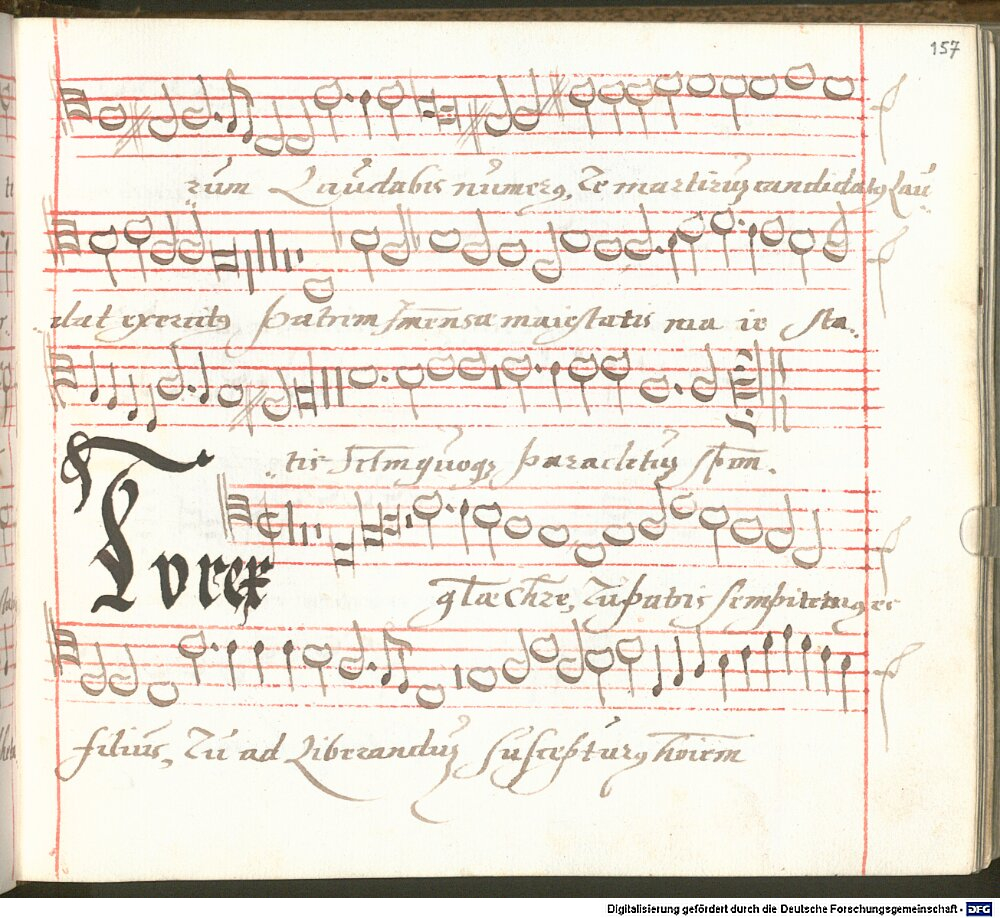 157
rum Laudabis numerꝯ, Te martirũ candidatꝯ Lau
dat exercitꝯ Patrem Jmẽnsæ maiestatis ma ie sta
tis Sctm̃ quoqꝫ paracletũ sp̃m.
Tu rex
glæ Chr̃e, Tu patris sempiternꝯ es
filius, Tu ad Liberandũ suscepturꝯ hoiem̃
Digitalisierung gefördert durch die Deutsche Forschungsgemeinschaft - DFG